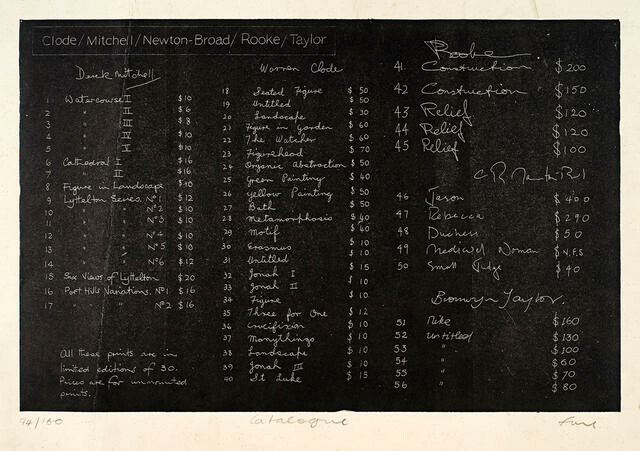 Clode/Mitchell/Newton-Broad/Rooke/Taylor
Derek Mitchell
1 Watercourse I $10
2 " II $6
3 " III $8
4 " IV $10
5 " V $10
6 Cathedral I $16
7 " II $16
8 Figure in Landscape $10
9 Lyttelton Series. No 1 $12
10 " " No 2 $10
11 " " No 3 $10
12 " " No 4 $10
13 " " No 5 $10
14 " " No 6 $12
15 Six Views of Lyttelton $20
16 Port Hills Variations. No 1 $16
17 " " No 2 $16
All these prints are in
limited editions of 30.
Prices are for unmounted
prints.
Warren Clode
18 Seated Figure $50
19 Untitled $50
20 Landscape $30
21 Figure in Garden $60
22 The Watcher $60
23 Figurehead $70
24 Organic Abstraction $50
25 Green Painting $40
26 Yellow Painting $50
27 Bath $50
28 Metamorphosis $40
29 Motif $40
30 Erasmus $10
31 Untitled $15
32 Jonah I $10
33 Jonah II $10
34 Figure $10
35 Three for One $12
36 Crucifixion $10
37 Monythings $10
38 Landscape $10
39 Jonah III $10
40 St Luke $15
Rooke
41. Construction $200
42 Construction $150
43 Relief $120
44 Relief $120
45 Relief $100
46 Jason $400
47 Rebecca $290
48 Duchess $50
49 Medieval Woman N.F.S
50 Small Judge $40
Bronwyn Taylor.
51 Nike $160
52 Untitled $130
53 " $100
54 " $60
55 " $70
56 " $80
94/100
Catalogue